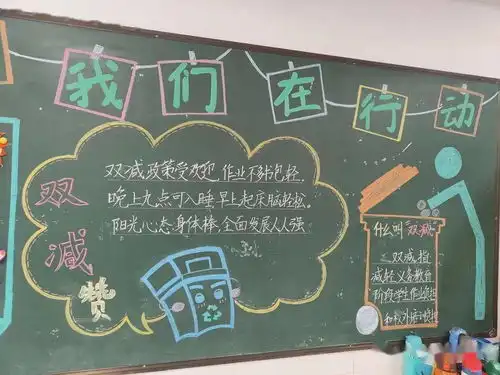 我们在行动
双减赞
双减政策受欢迎 作业不多书包轻
晚上九点可入睡 早上起床脑轻松。
阳光心态身体棒 全面发展人人强
什么叫“双减”
双减指
减轻义务教育
阶段学生作业负担
和校外培训负担